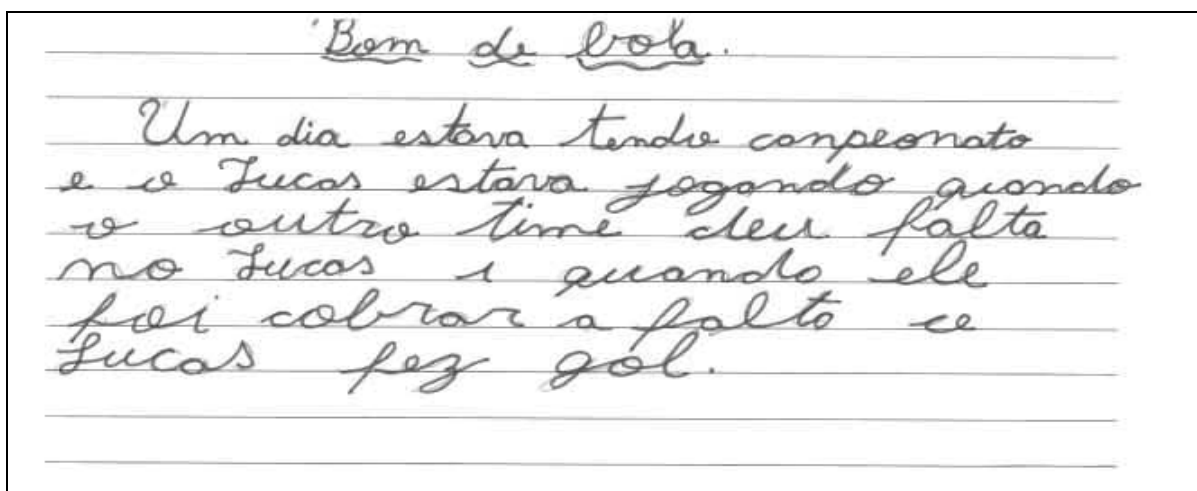 Bom de bola.
Um dia estava tendo canpeonato
e o Lucas estava jogando quando
o outro time deu falta
no Lucas i quando ele
foi cobrar a falta o
Lucas fez gol.